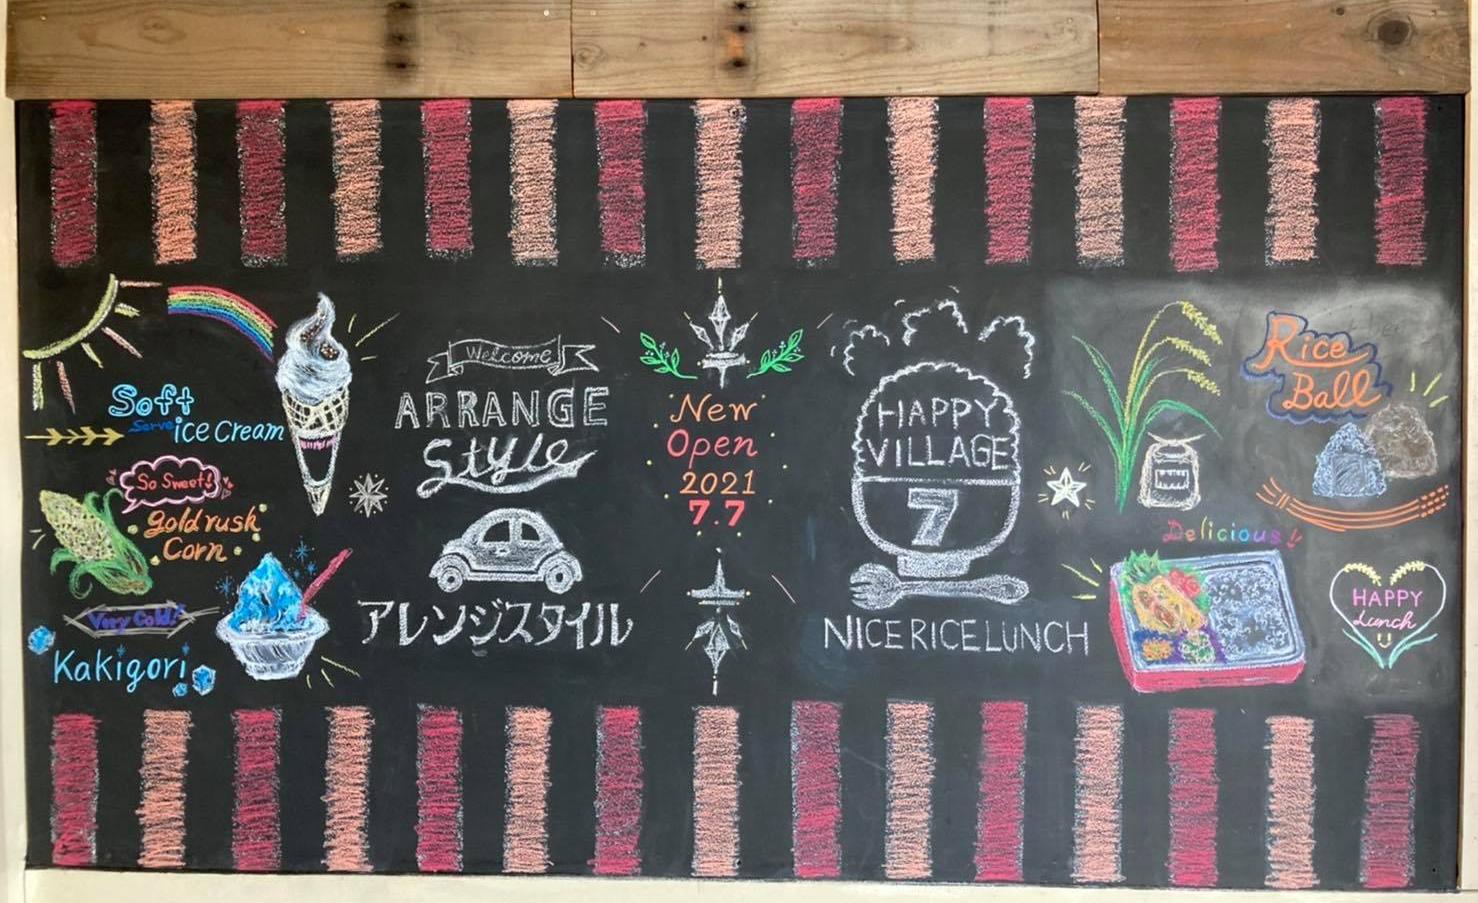 Soft
Serve ice cream
So Sweet!
gold rush
Corn
Very Cold!
Kakigori
Welcome
ARRANGE
Style
アレンジスタイル
New
Open
2021
7.7
HAPPY
VILLAGE
7
NICE RICE LUNCH
Rice
Ball
Delicious!!
HAPPY
Lunch